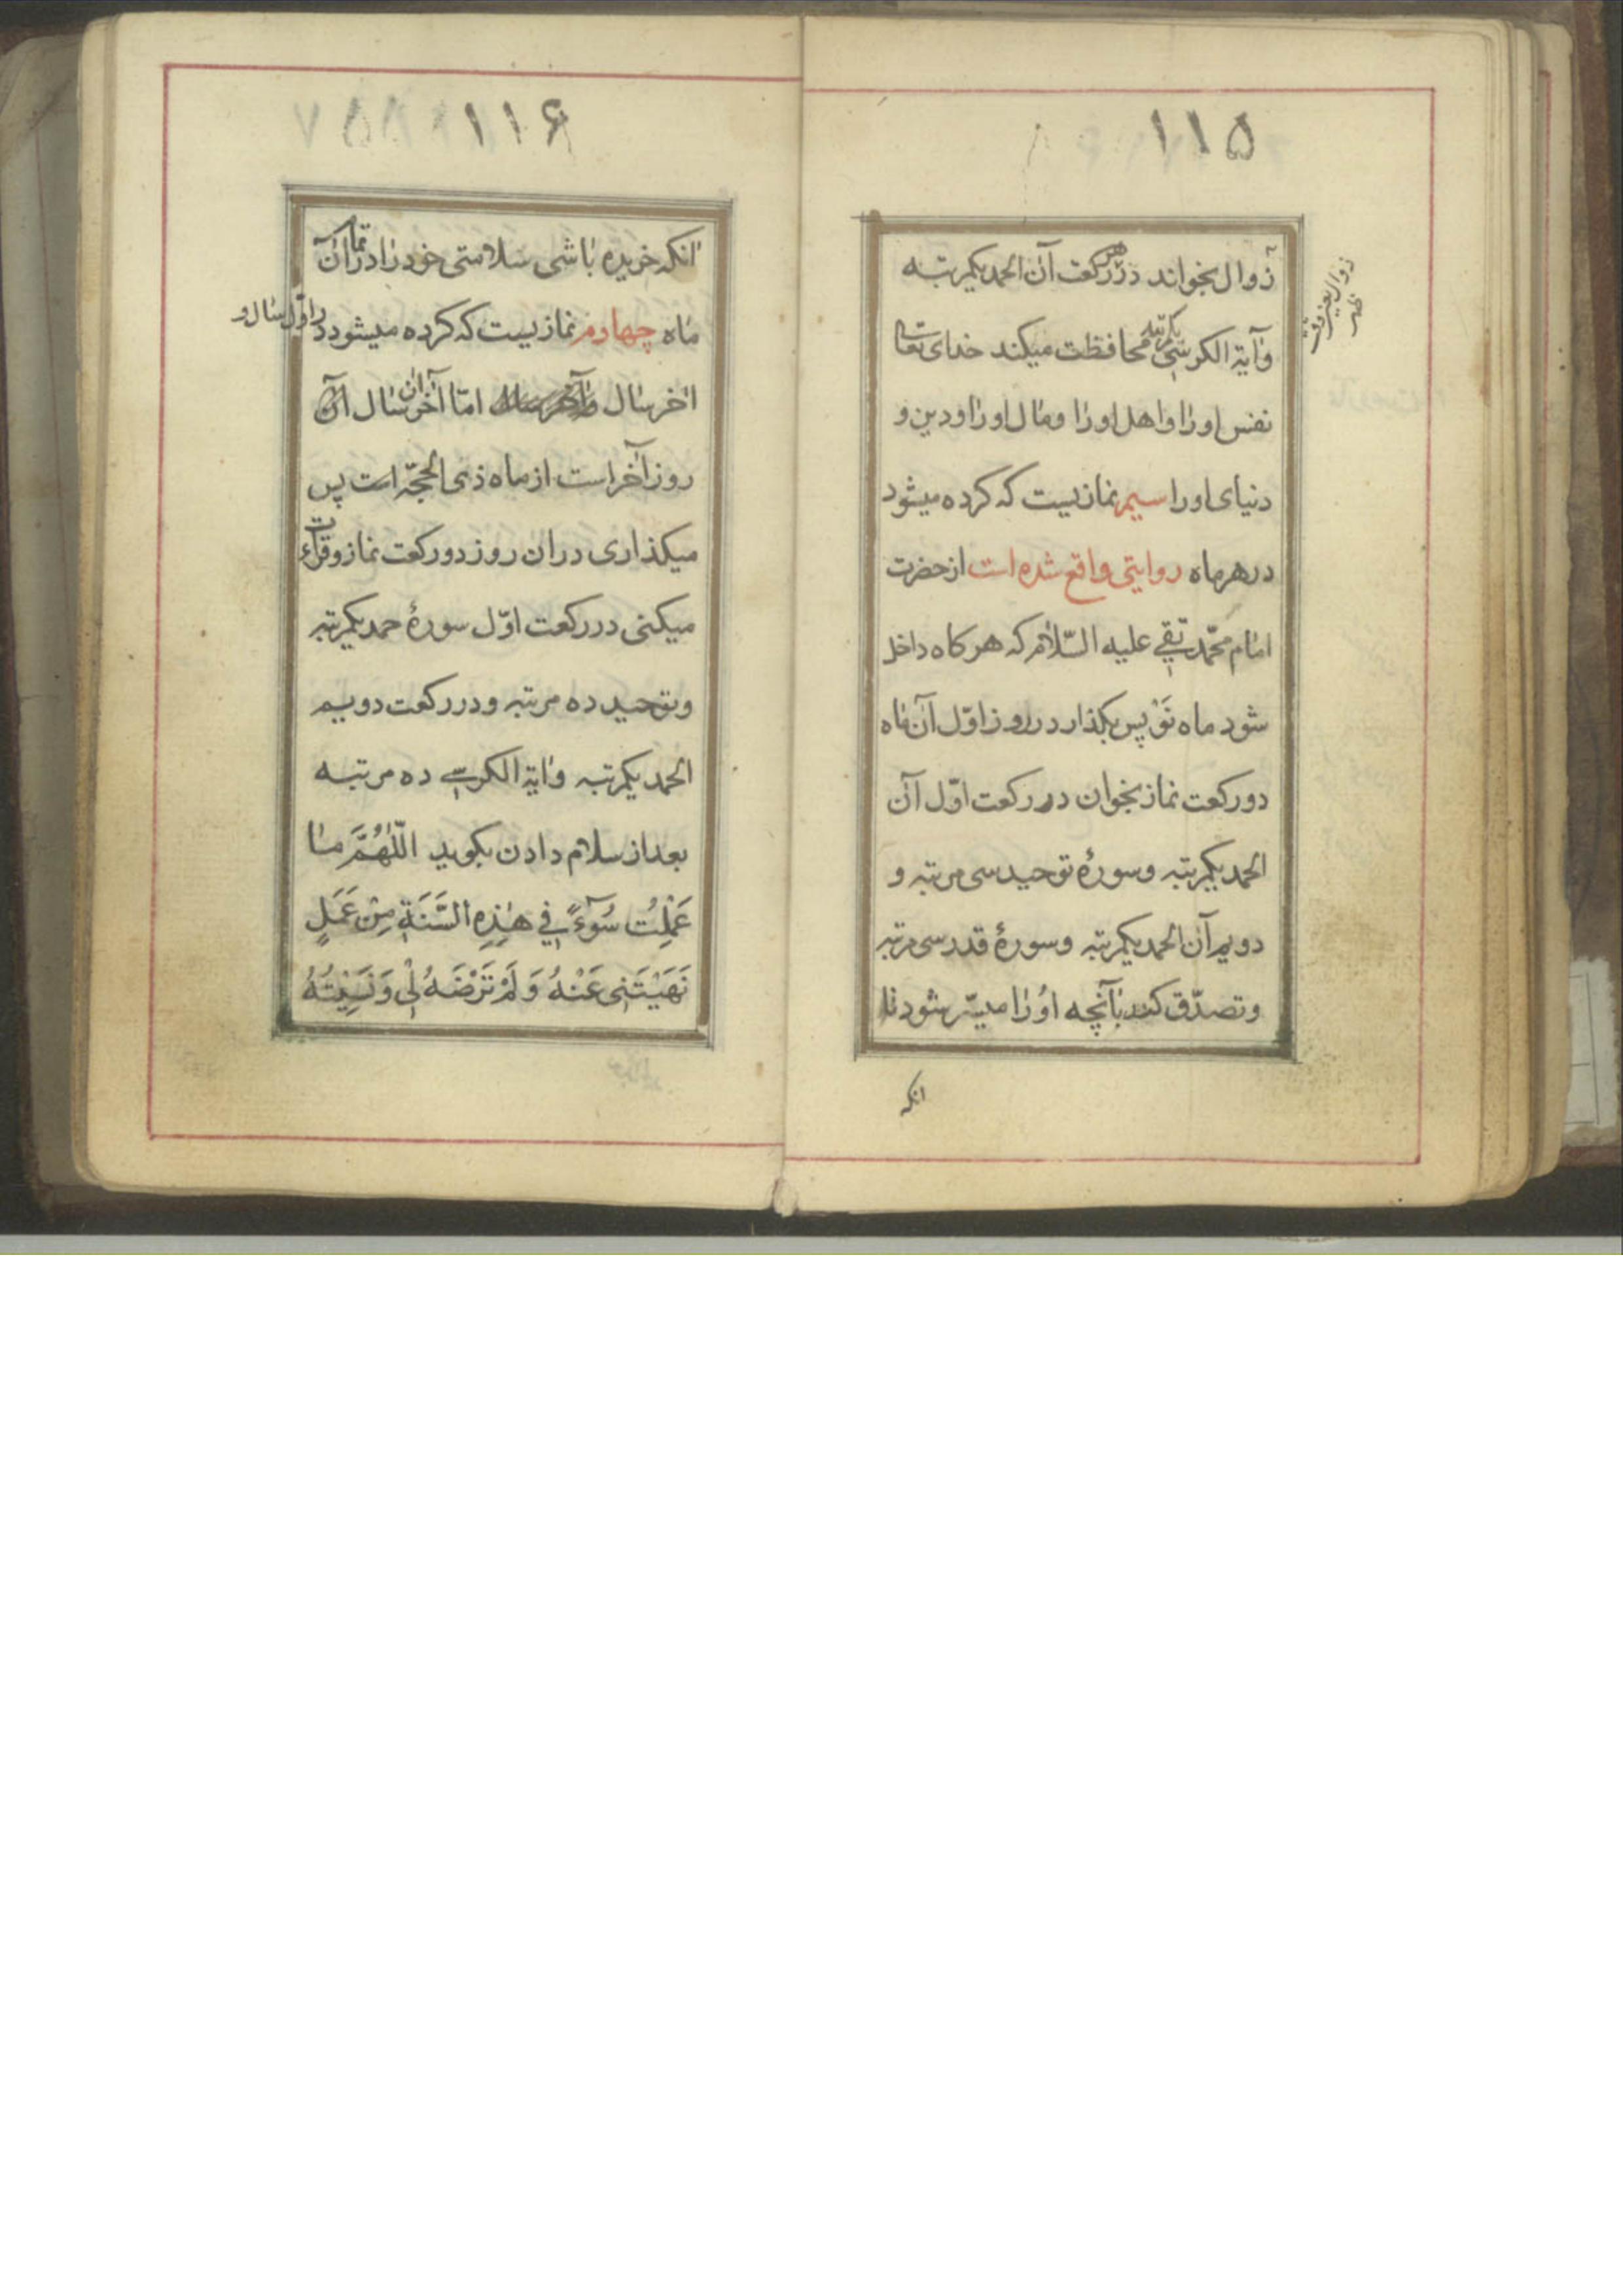 ۱۱۵
زوال بخواند در هر رکعت آن الحمد یکمرتبه
وآیة الکرسی یکمرتبه محافظت میکند خدای تعالی
نفس اورا واهل اورا ومال اورا ودین و
دنیای اورا سیم نمازیست که کرده میشود
درهرماه روایتی واقع شده است از حضرت
امام محمّد تقی علیه السّلام که هرکاه داخل
شود ماه نَوْ پس بکذار در روز اوّل آن ماه
دورکعت نماز بخوان در رکعت اوّل آن
الحمد یکمرتبه وسورهٔ توحید سی مرتبه و
دویم آن الحمد یکمرتبه وسورهٔ قدر سی مرتبه
وتصدّق کند بآنچه اوُرا میسّر شود تا
انکه
زوال یعنی وقت
ظهر
۱۱۶
انکه خریده باشی سلامتی خودرا در تمام آن
ماه چهارم نمازیست که کرده میشود در اوّل سال و
اخر سال امّا آخر آن سال آن
روز آخر است از ماه ذی الحجّه است پس
میکذاری دران روز دورکعت نماز وقرائت
میکنی در رکعت اوّل سورهٔ حمد یکمرتبه
وتوحید ده مرتبه ودر رکعت دویم
الحمد یکمرتبه وایة الکرسی ده مرتبه
بعد از سلام دادن بکوید اللّٰهُمَّ مٰا
عَمِلْتُ سُوٓءً فِي هٰذِهِ السَّنَةِ مِنْ عَمَلٍ
نَهَيْتَنِى عَنْهُ وَلَمْ تَرْضَهُ لِى وَنَسِيْتُهُ